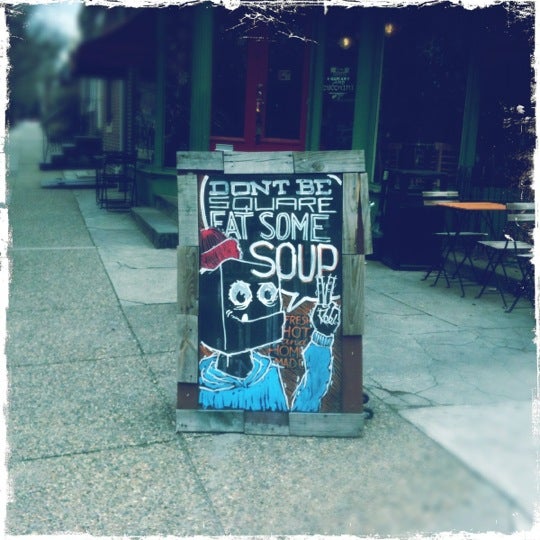 DONT BE
SQUARE
EAT SOME
SOUP
FRESH
HOT
HOME
MADE